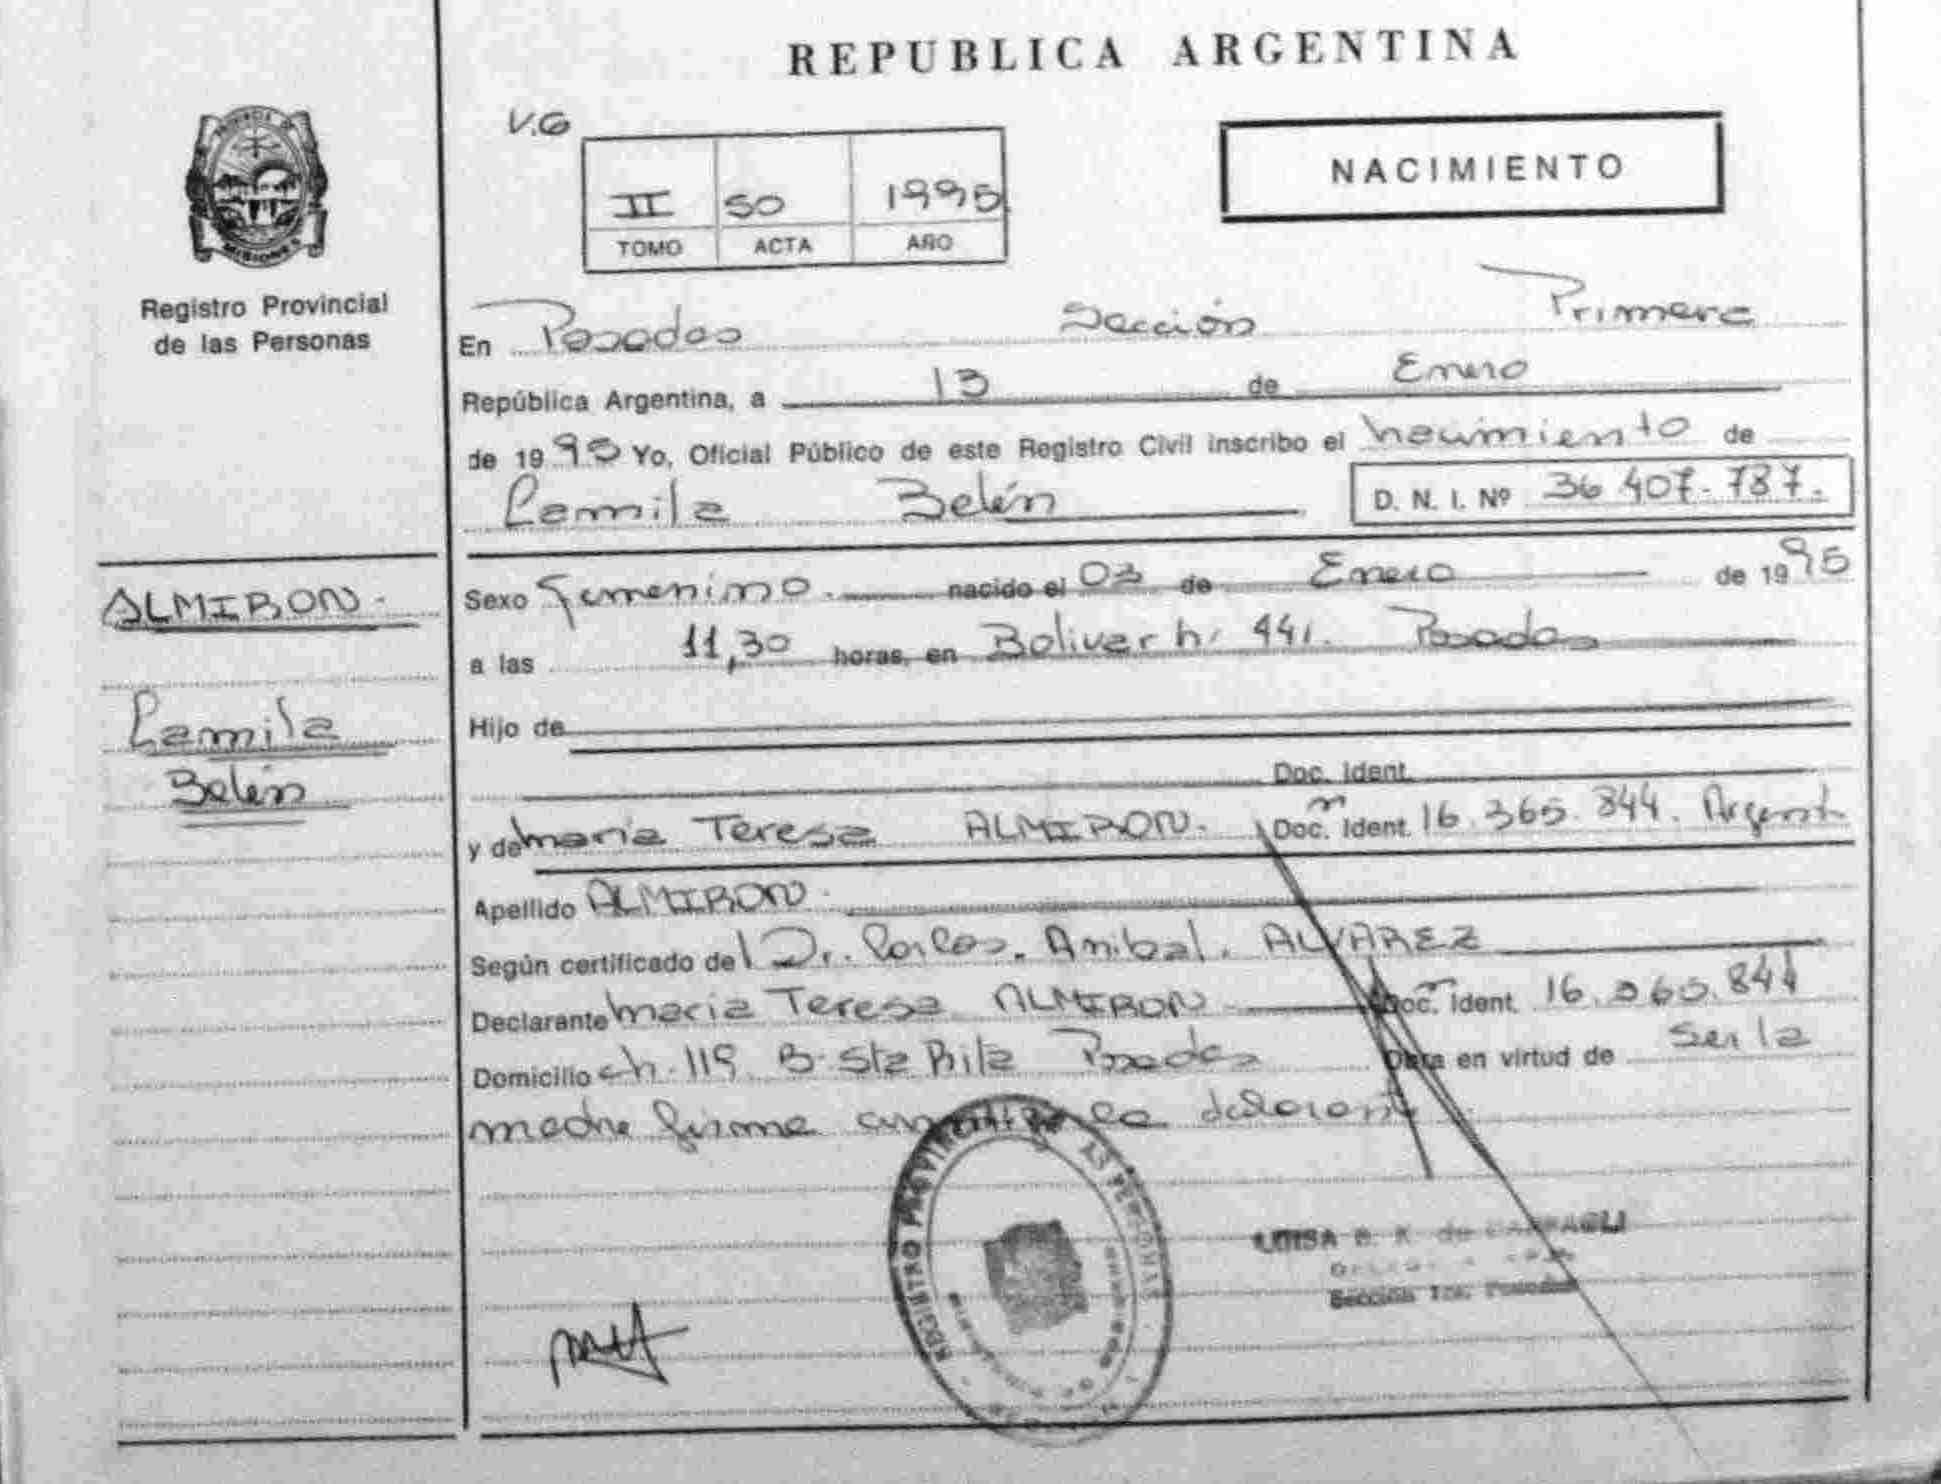 REPUBLICA ARGENTINA
V.G
NACIMIENTO
II 50 1995
TOMO ACTA AÑO
PROVINCIA DE
MISIONES
Registro Provincial
de las Personas
En Posadas Sección Primera
República Argentina, a 13 de Enero
de 1995 Yo, Oficial Público de este Registro Civil inscribo el nacimiento de
Camila Belén D. N. I. Nº 36 407.787.
ALMIRON.
Camila
Belén
Sexo Femenino. nacido el 03 de Enero de 1995
a las 11,30 horas, en Bolivar h. 441. Posadas
Hijo de
Doc. Ident.
y de Maria Teresa ALMIRON. Doc. Ident. 16.365.844. Argent
Apellido ALMIRON.
Según certificado del Dr. Carlos. Anibal. ALVAREZ
Declarante Maria Teresa ALMIRON Doc. Ident. 16.365.844
Domicilio ch. 119 B. Sta Rita Posadas Obra en virtud de ser la
madre firma la declarante
REGISTRO PROVINCIAL DE LAS PERSONAS
LUISA B. K. de
Sección 1ra. Posadas